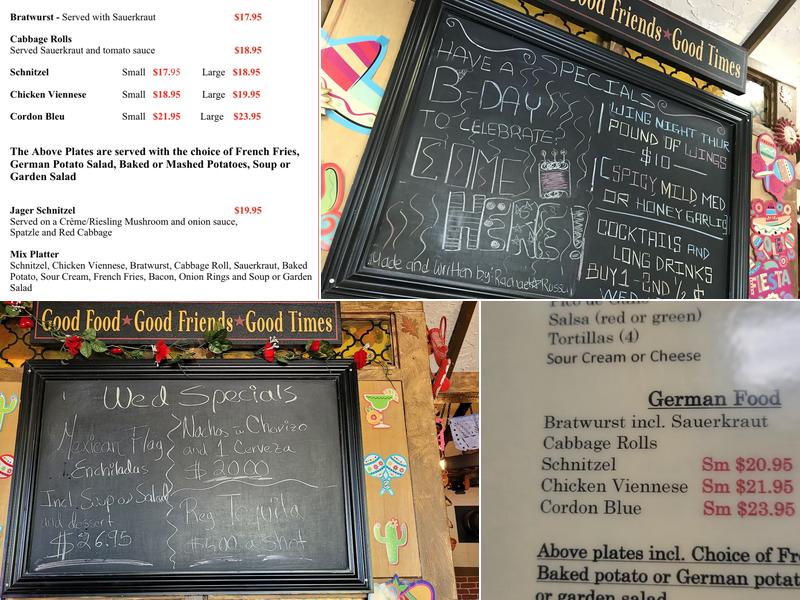 Bratwurst - Served with Sauerkraut $17.95
Cabbage Rolls
Served Sauerkraut and tomato sauce $18.95
Schnitzel Small $17.95 Large $18.95
Chicken Viennese Small $18.95 Large $19.95
Cordon Bleu Small $21.95 Large $23.95
The Above Plates are served with the choice of French Fries,
German Potato Salad, Baked or Mashed Potatoes, Soup or
Garden Salad
Jager Schnitzel $19.95
Served on a Crème/Riesling Mushroom and onion sauce,
Spatzle and Red Cabbage
Mix Platter
Schnitzel, Chicken Viennese, Bratwurst, Cabbage Roll, Sauerkraut, Baked
Potato, Sour Cream, French Fries, Bacon, Onion Rings and Soup or Garden
Salad
Good Friends★Good Times
SPECIALS
HAVE A
B-DAY
TO CELEBRATE?
COME
HERE!
Made and Written by: Rachael
WING NIGHT THUR
POUND OF WINGS
$10
SPICY MILD, MED
OR HONEY GARLIC
COCKTAILS AND
LONG DRINKS
BUY 1-2ND ½ $
WED
FIESTA
Good Food★Good Friends★Good Times
Wed Specials
Mexican Flag
Enchiladas
Incl. Soup or Salad
and dessert
$26.95
Nachos w Chorizo
and 1 Cerveza
$20.00
Reg Tequila
a shot
Salsa (red or green)
Tortillas (4)
Sour Cream or Cheese
German Food
Bratwurst incl. Sauerkraut
Cabbage Rolls
Schnitzel Sm $20.95
Chicken Viennese Sm $21.95
Cordon Blue Sm $23.95
Above plates incl. Choice of Fr
Baked potato or German potat
or garden salad